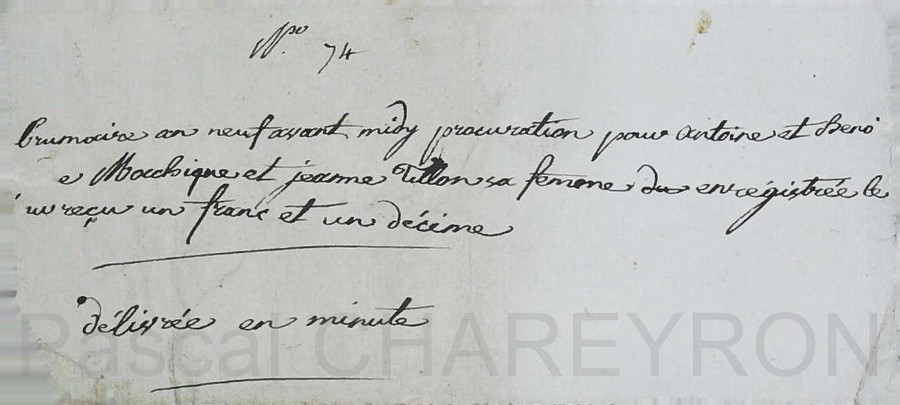 N.º 74
brumaire an neuf avant midy procuration pour antoine et Beno
e Mochique et jeanne Tillon sa femme du enregistrée le
reçu un franc et un décime
délivrée en minute
Pascal CHAREYRON